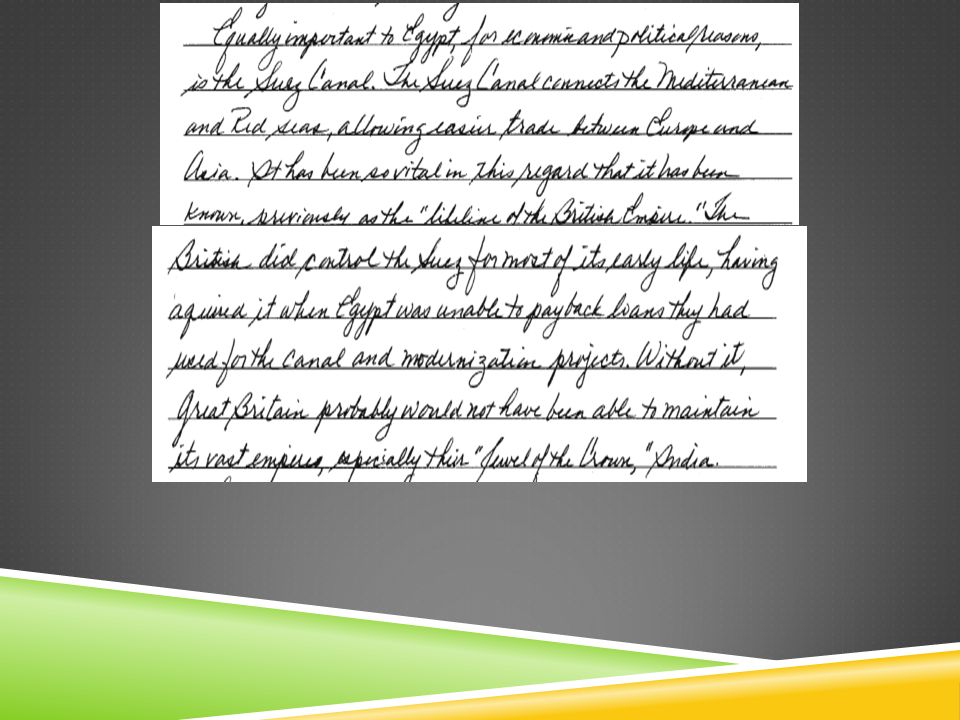 Equally important to Egypt, for economic and political reasons,
is the Suez Canal. The Suez Canal connects the Mediterranean
and Red seas, allowing easier trade between Europe and
Asia. It has been so vital in this regard that it has been
known, previously as the "lifeline of the British Empire." The
British did control the Suez for most of its early life, having
aquired it when Egypt was unable to payback loans they had
used for the canal and modernization projects. Without it,
Great Britain probably would not have been able to maintain
its vast empires, especially their "Jewel of the Crown," India.